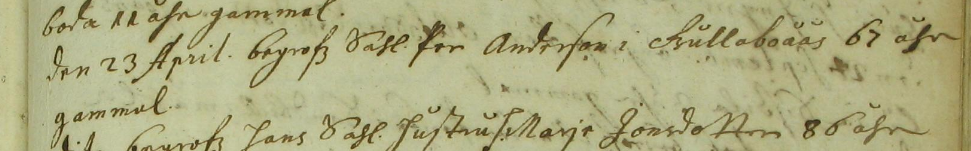 boda 11 åhr gammal.
den 23 April. begrofz Sahl. Per Anderson i Kullaboåås 67 åhr
gammal.
dito begrofz hans Sahl. hustru Marje Jonsdotter 86 åhr